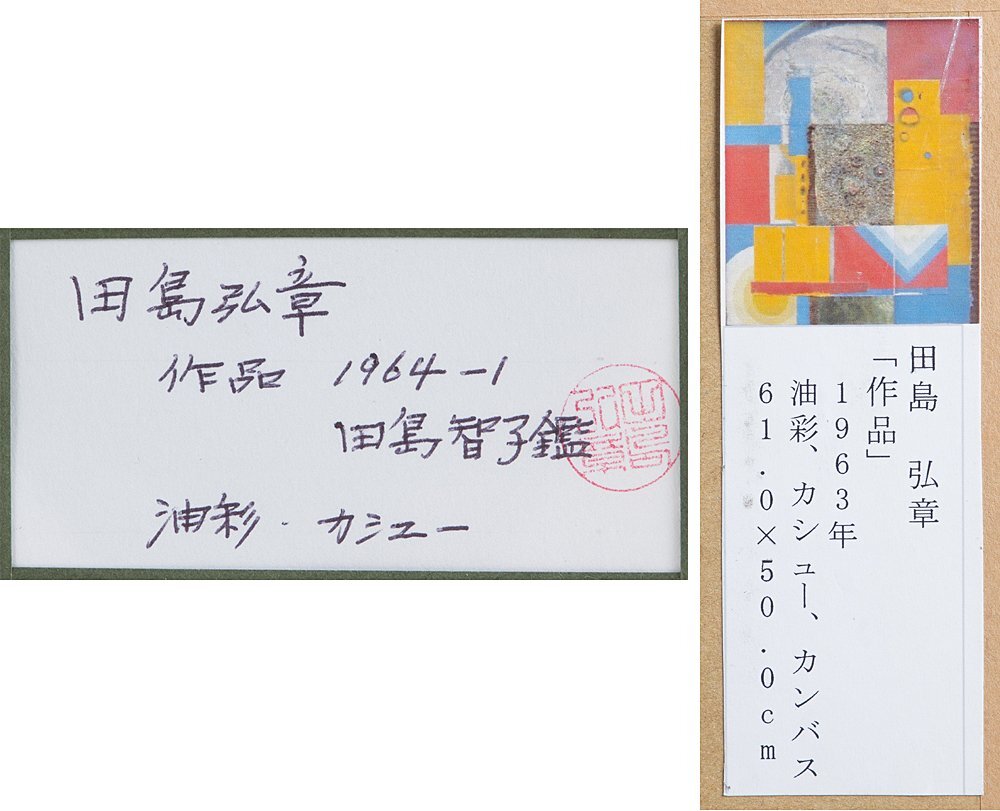 田島弘章
作品 1964-1
田島智子鑑
油彩・カシュー
田島 弘章
「作品」
1963年
油彩、カシュー、カンバス
61.0×50.0cm